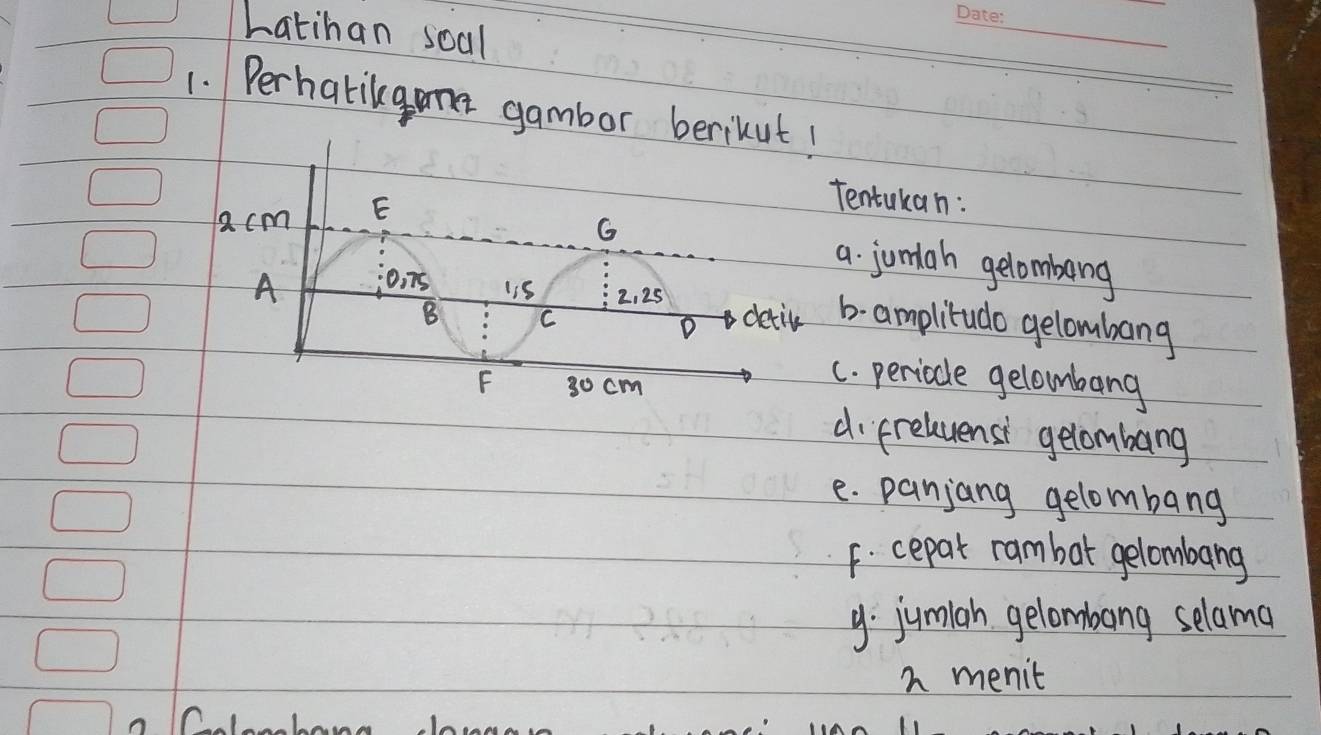 Date:
Latihan soal
1. Perhatik gambar berikut!
Tentukan:
2 cm E G
a. jumlah gelombang
A 0,75 1,5 2,25
B C D detik b. amplitudo gelombang
F 30 cm c. periode gelombang
d. frekuensi gelombang
e. panjang gelombang
F. cepat rambat gelombang
g. jumlah gelombang selama
2 menit
2 Gelombang dengan